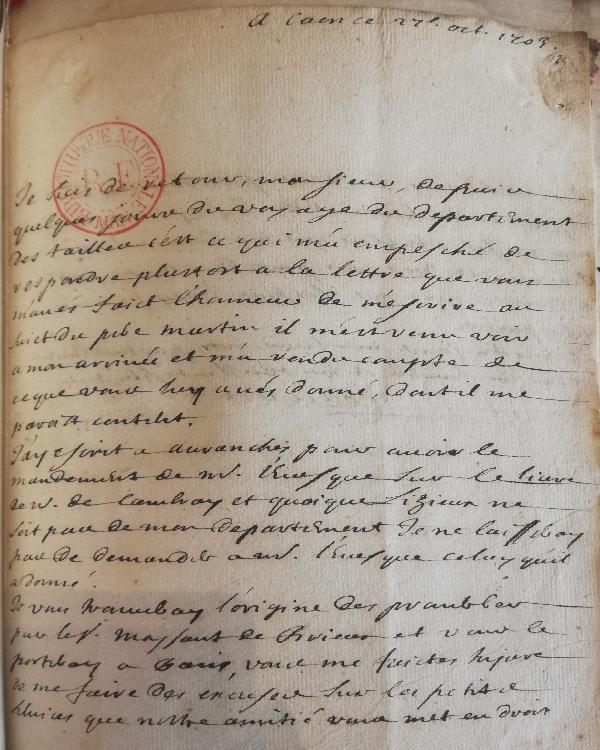 A Caen ce 27e. oct. 1703.
BIBLIOTHEQUE NATIONALE
R.F.
Je suis de retour, monsieur, depuis
quelques jours du voyage du departement
des tailles c'est ce qui m'a empesché de
respondre plustost a la lettre que vous
m'aués faict l'honneur de m'escrire au
suiet du martin il m'est venu voir
a mon arriuée et m'a rendu compte de
ce que vous luy aués donné, dont il me
paroist content.
J'ay escrit a auranches pour auoir le
mandement de mr. l'Euesque sur le liure
de mr. de Cambray et quoique Lizieux ne
soit pas de mon departement Je ne laisseray
pas de demander a mr. l'Euesque celuy quil
a donné.
Je vous l'origine des
par le Sr. de et vous le
a Paris, vous me faictes Injure
de me faire des excuses sur les petits
que nostre amitié vous met en droit